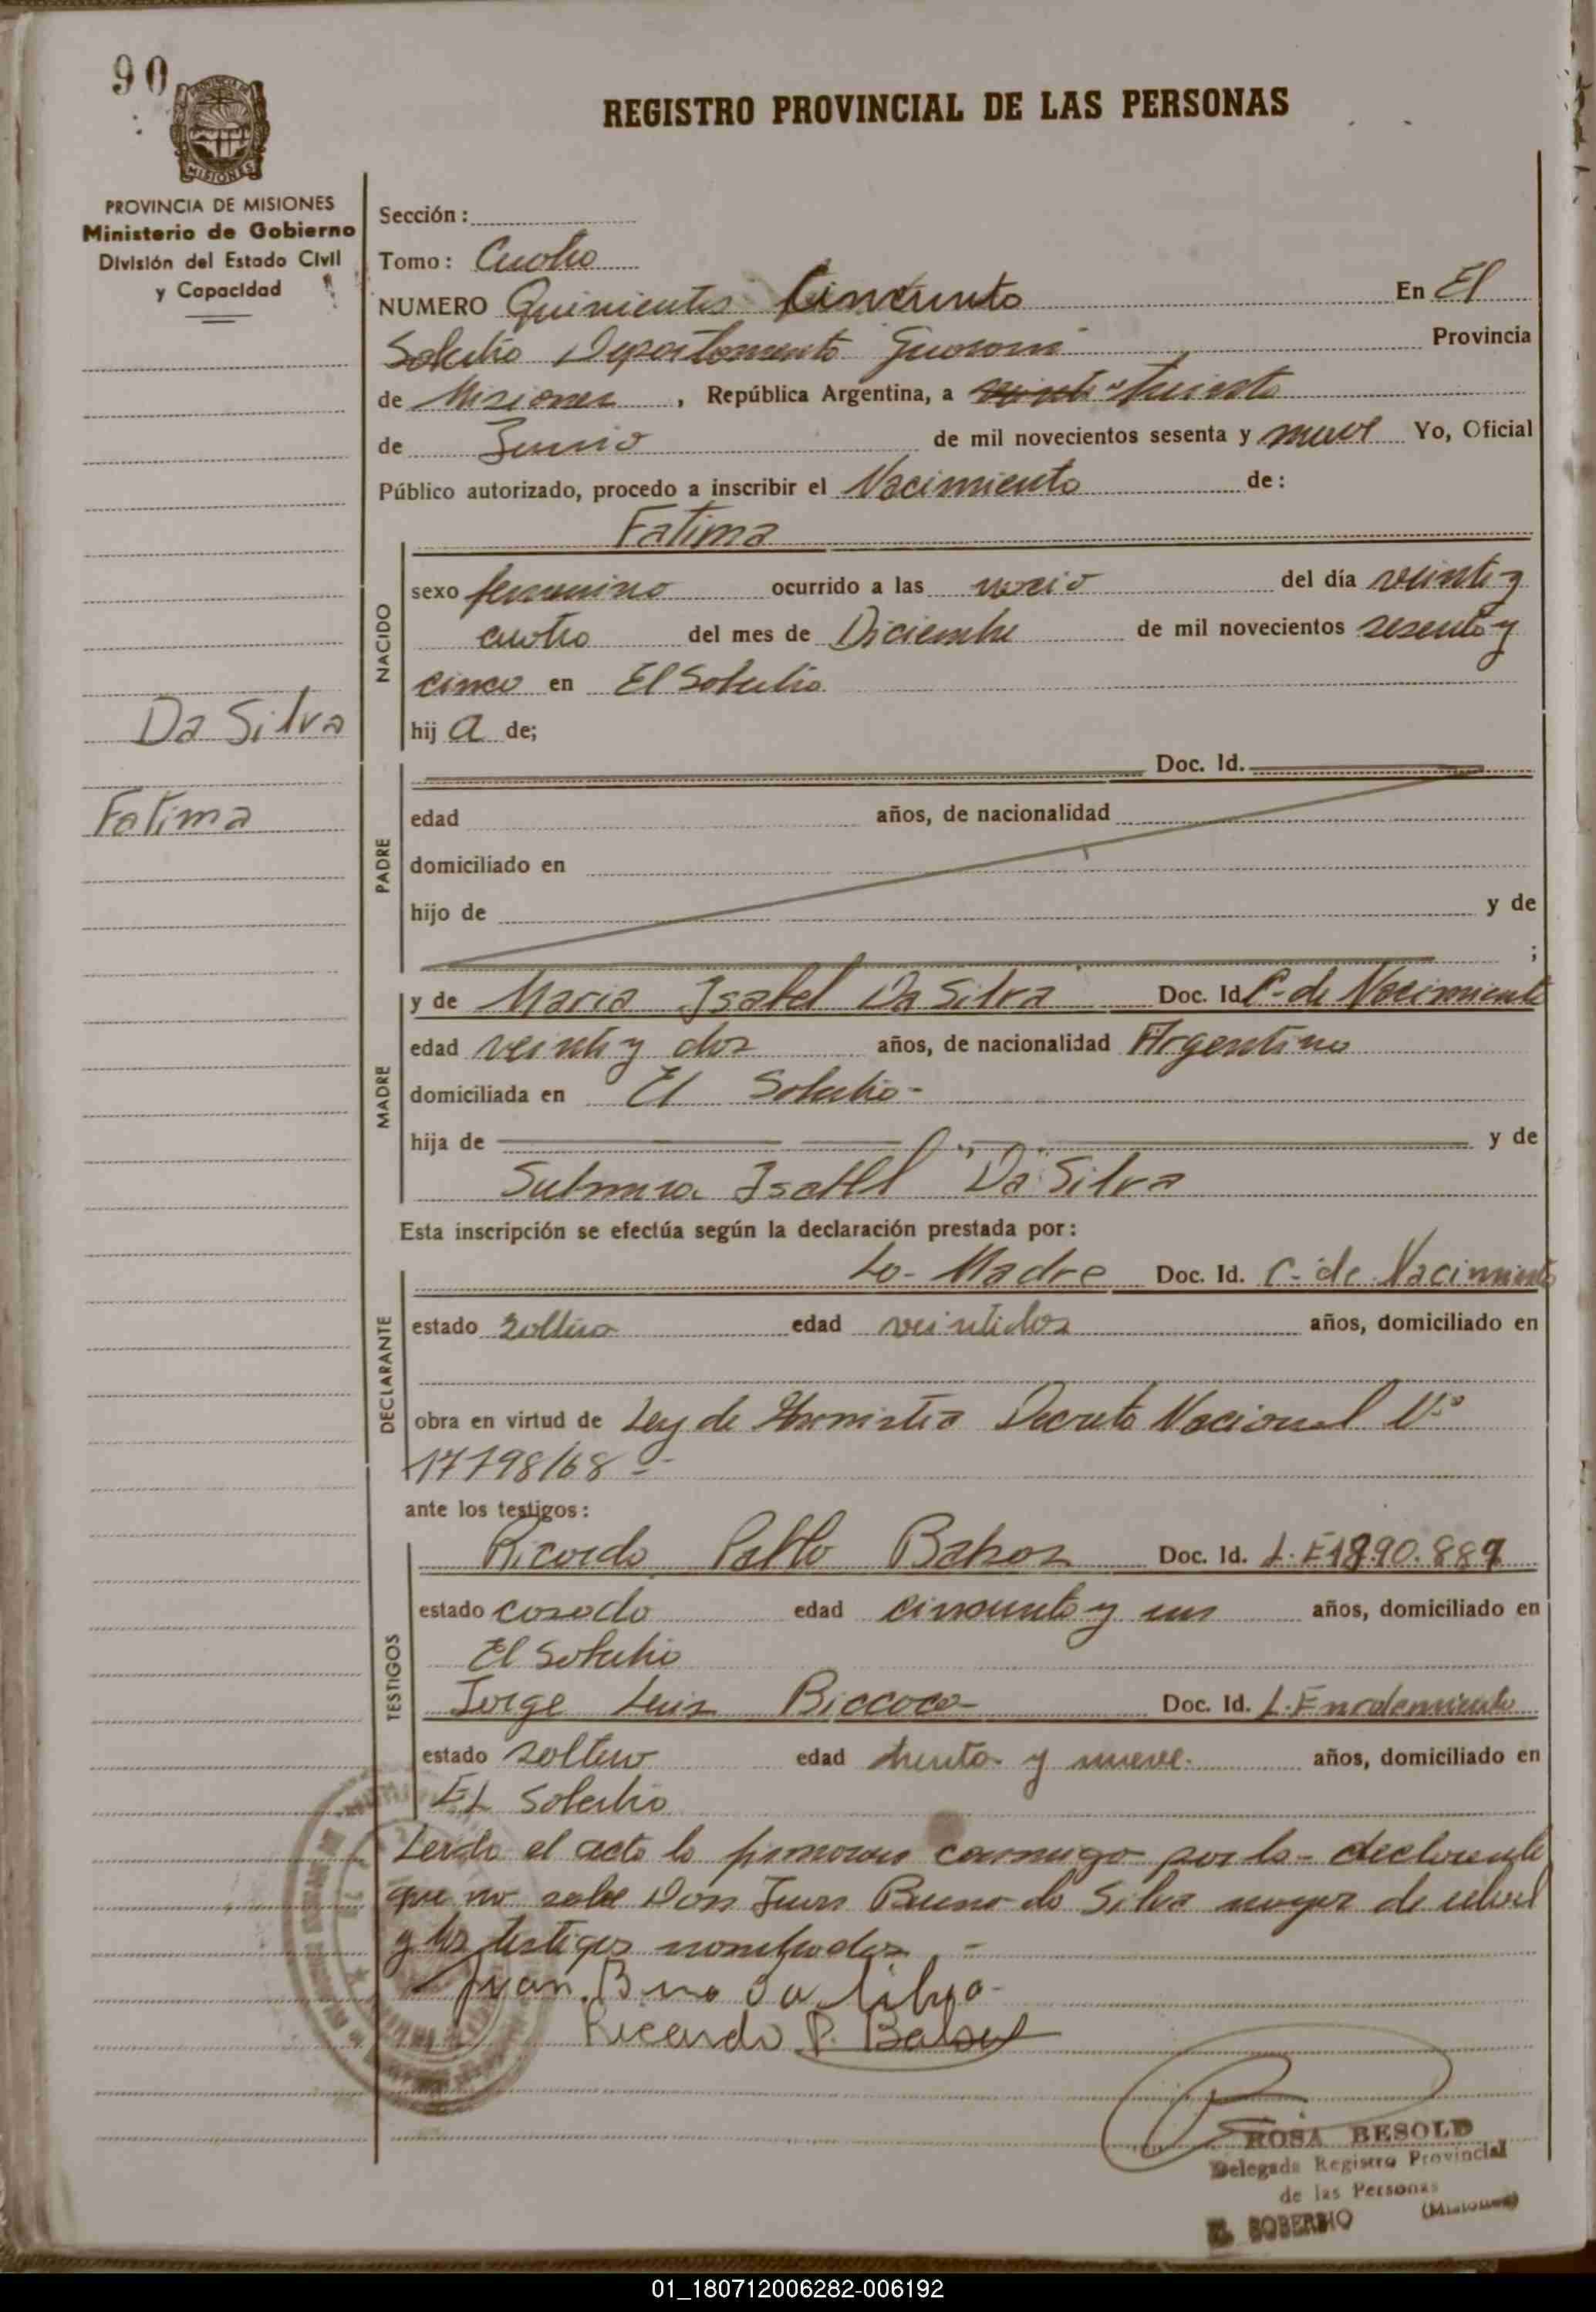 90
PROVINCIA DE
MISIONES
REGISTRO PROVINCIAL DE LAS PERSONAS
PROVINCIA DE MISIONES
Ministerio de Gobierno
División del Estado Civil
y Capacidad
Sección:
Tomo: Cuatro
NUMERO Quinientos Cincuenta En El
Soberbio Departamento Guarani Provincia
de Misiones, República Argentina, a treinta
de Junio de mil novecientos sesenta y nueve Yo, Oficial
Público autorizado, procedo a inscribir el Nacimiento de:
Fatima
NACIDO
sexo femenino ocurrido a las del día veinti y
cuatro del mes de Diciembre de mil novecientos sesenta y
cinco en El Soberbio
hij a de;
Da Silva
Fatima
PADRE
Doc. Id.
edad años, de nacionalidad
domiciliado en
hijo de y de
;
MADRE
y de Maria Isabel Da Silva Doc. Id. C. de Nacimiento
edad veinti y dos años, de nacionalidad Argentina
domiciliada en El Soberbio-
hija de y de
Isabel Da Silva
Esta inscripción se efectúa según la declaración prestada por:
DECLARANTE
La Madre Doc. Id. C. de Nacimiento
estado soltera edad veintidos años, domiciliado en
obra en virtud de Ley de Amnistia Decreto Nacional Nº
17798/68
ante los testigos:
TESTIGOS
Ricardo Pablo Doc. Id. L. E 1890.889
estado casado edad cincuenta y un años, domiciliado en
El Soberbio
Jorge Luis Biccoca Doc. Id. L. Enrolamiento
estado soltero edad trenta y nueve. años, domiciliado en
El Soberbio
Leida el acta la firmaron conmigo por la declarante
que no sabe Don Juan Bruno da Silva mayor de edad
y los testigos nombrados.-
Juan. B da
Ricardo P.
ROSA BESOLD
Delegada Registro Provincial
de las Personas
EL SOBERBIO (Misiones)
01_180712006282-006192